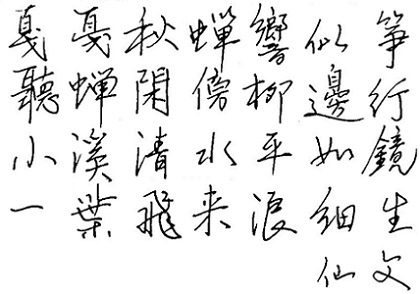 戛戛秋蝉響似筝
聽蝉閑傍柳邊行
小溪清水平如鏡
一葉飛来浪細生
仙文